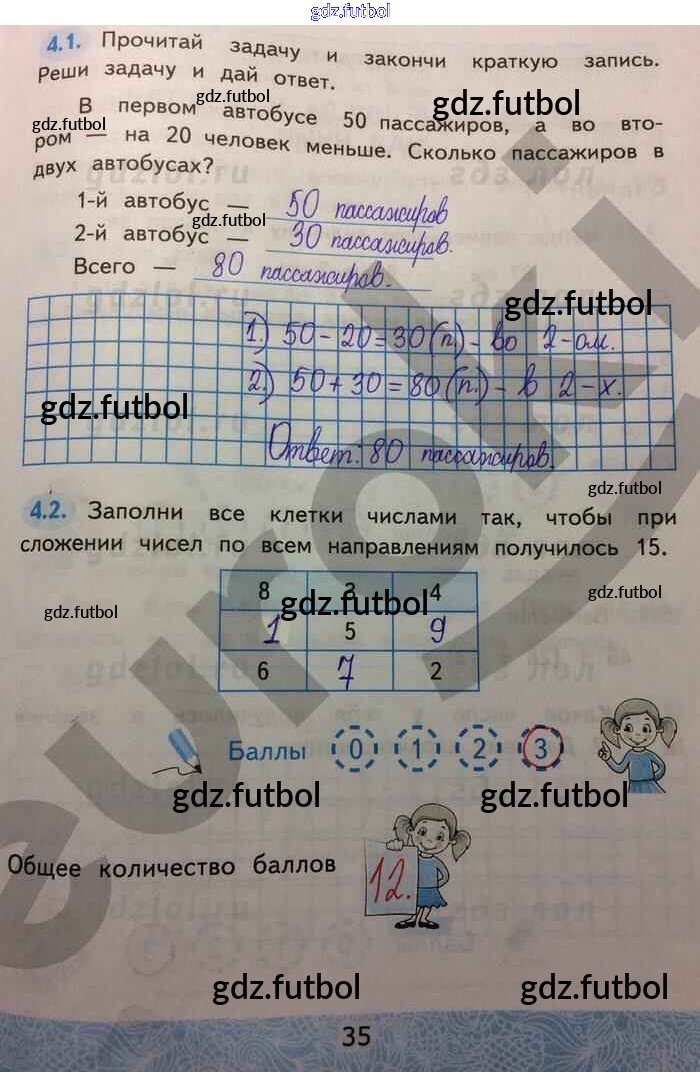 gdz.futbol
4.1. Прочитай задачу и закончи краткую запись.
Реши задачу и дай ответ.
gdz.futbol
gdz.futbol
В первом автобусе 50 пассажиров, а во вто-
gdz.futbol
ром — на 20 человек меньше. Сколько пассажиров в
двух автобусах?
1-й автобус — 50 пассажиров
gdz.futbol
2-й автобус — 30 пассажиров.
Всего — 80 пассажиров.
gdz.futbol
1.) 50 - 20 = 30 (п.) - во 2-ом.
2.) 50 + 30 = 80 (п.) - в 2-х.
gdz.futbol
Ответ: 80 пассажиров.
gdz.futbol
4.2. Заполни все клетки числами так, чтобы при
сложении чисел по всем направлениям получилось 15.
8 3 4
gdz.futbol
gdz.futbol
gdz.futbol
1 5 9
6 7 2
Баллы 0 1 2 3
gdz.futbol
gdz.futbol
Общее количество баллов 12.
gdz.futbol
gdz.futbol
35
euroki